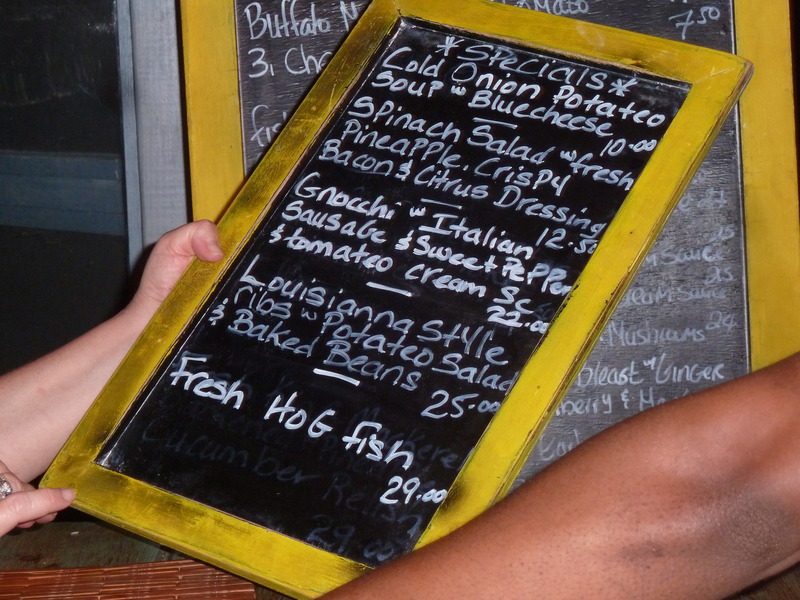 Buffalo
7.50
3, Ch
*Specials*
Cold Onion Potateo
Soup w Bluecheese
10.00
Spinach Salad w fresh
Pineapple, Crispy
Bacon & Citrus Dressing
12.50
Gnocchi w Italian
Sausage & Sweet Pepper
& tomateo cream Sc
22.00
Louisianna Style
ribs w Potateo Salad
& Baked Beans
25.00
Fresh HOG fish
29.00
Cucumber Relish
29.00
Sauce
25
Mushrums 24
Breast w Ginger